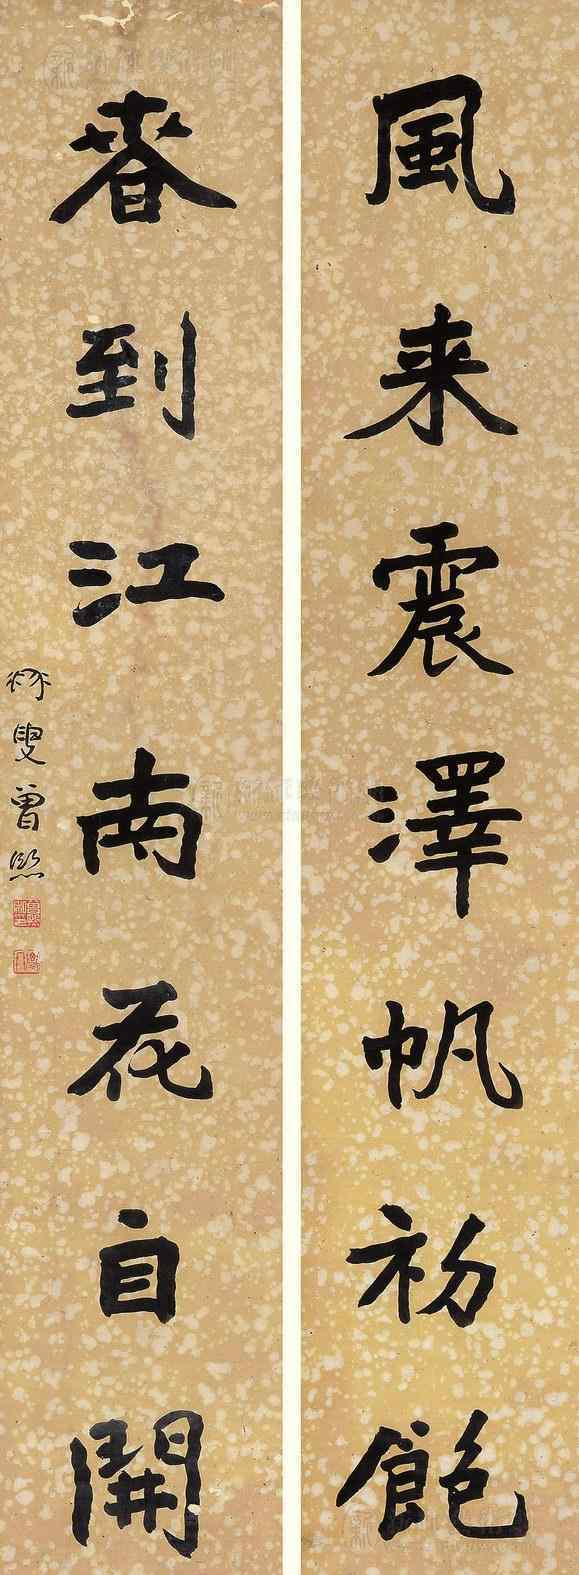 風来震澤帆初飽
春到江南花自開
叟曾熙